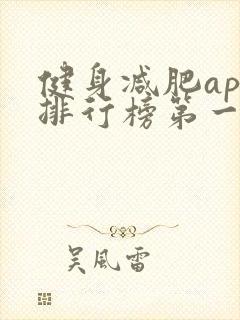 健身减肥ap
排行榜第一
吴風雷